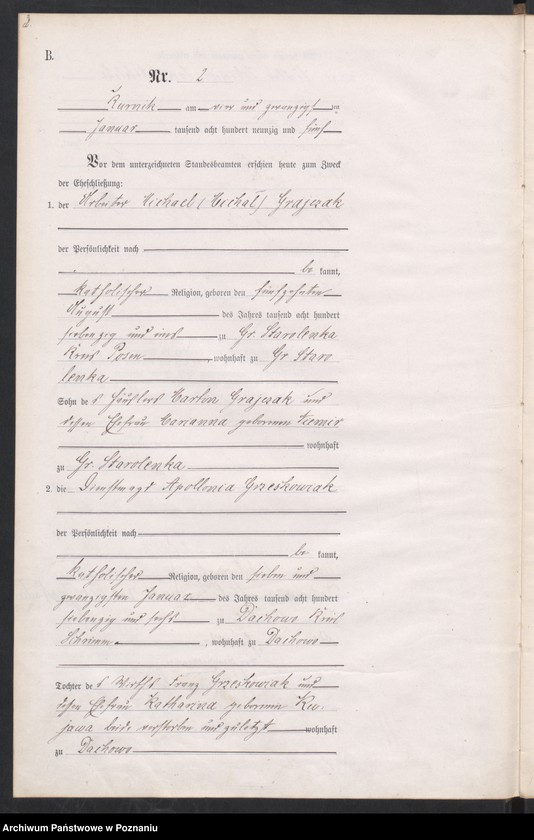 B.
Nr. 2
Kurnik am vier und zwanzigsten
Januar tausend acht hundert neunzig und fünf
Vor dem unterzeichneten Standesbeamten erschien heute zum Zweck
der Eheschließung:
1. der Arbeiter Michael (Michał) Grajczak
der Persönlichkeit nach
be kannt,
katholischer Religion, geboren den fünfzehnten
August des Jahres tausend acht hundert
siebenzig und eins zu Gr. Starolenka
Kreis Posen, wohnhaft zu Gr. Staro
lenka
Sohn des Häuslers Martin Grajczak und
dessen Ehefrau Marianna geborenen
wohnhaft
zu Gr. Starolenka
2. die Dienstmagd Apollonia Grzeskowiak
der Persönlichkeit nach
be kannt,
katholischer Religion, geboren den sieben und
zwanzigsten Januar des Jahres tausend acht hundert
siebenzig und sechs zu Dachowo Kreis
Schrimm, wohnhaft zu Dachowo
Tochter des Wirths Franz Grzeskowiak und
dessen Ehefrau Katharina geborenen Ku-
jawa beide verstorben und zuletzt wohnhaft
zu Dachowo
Archiwum Państwowe w Poznaniu